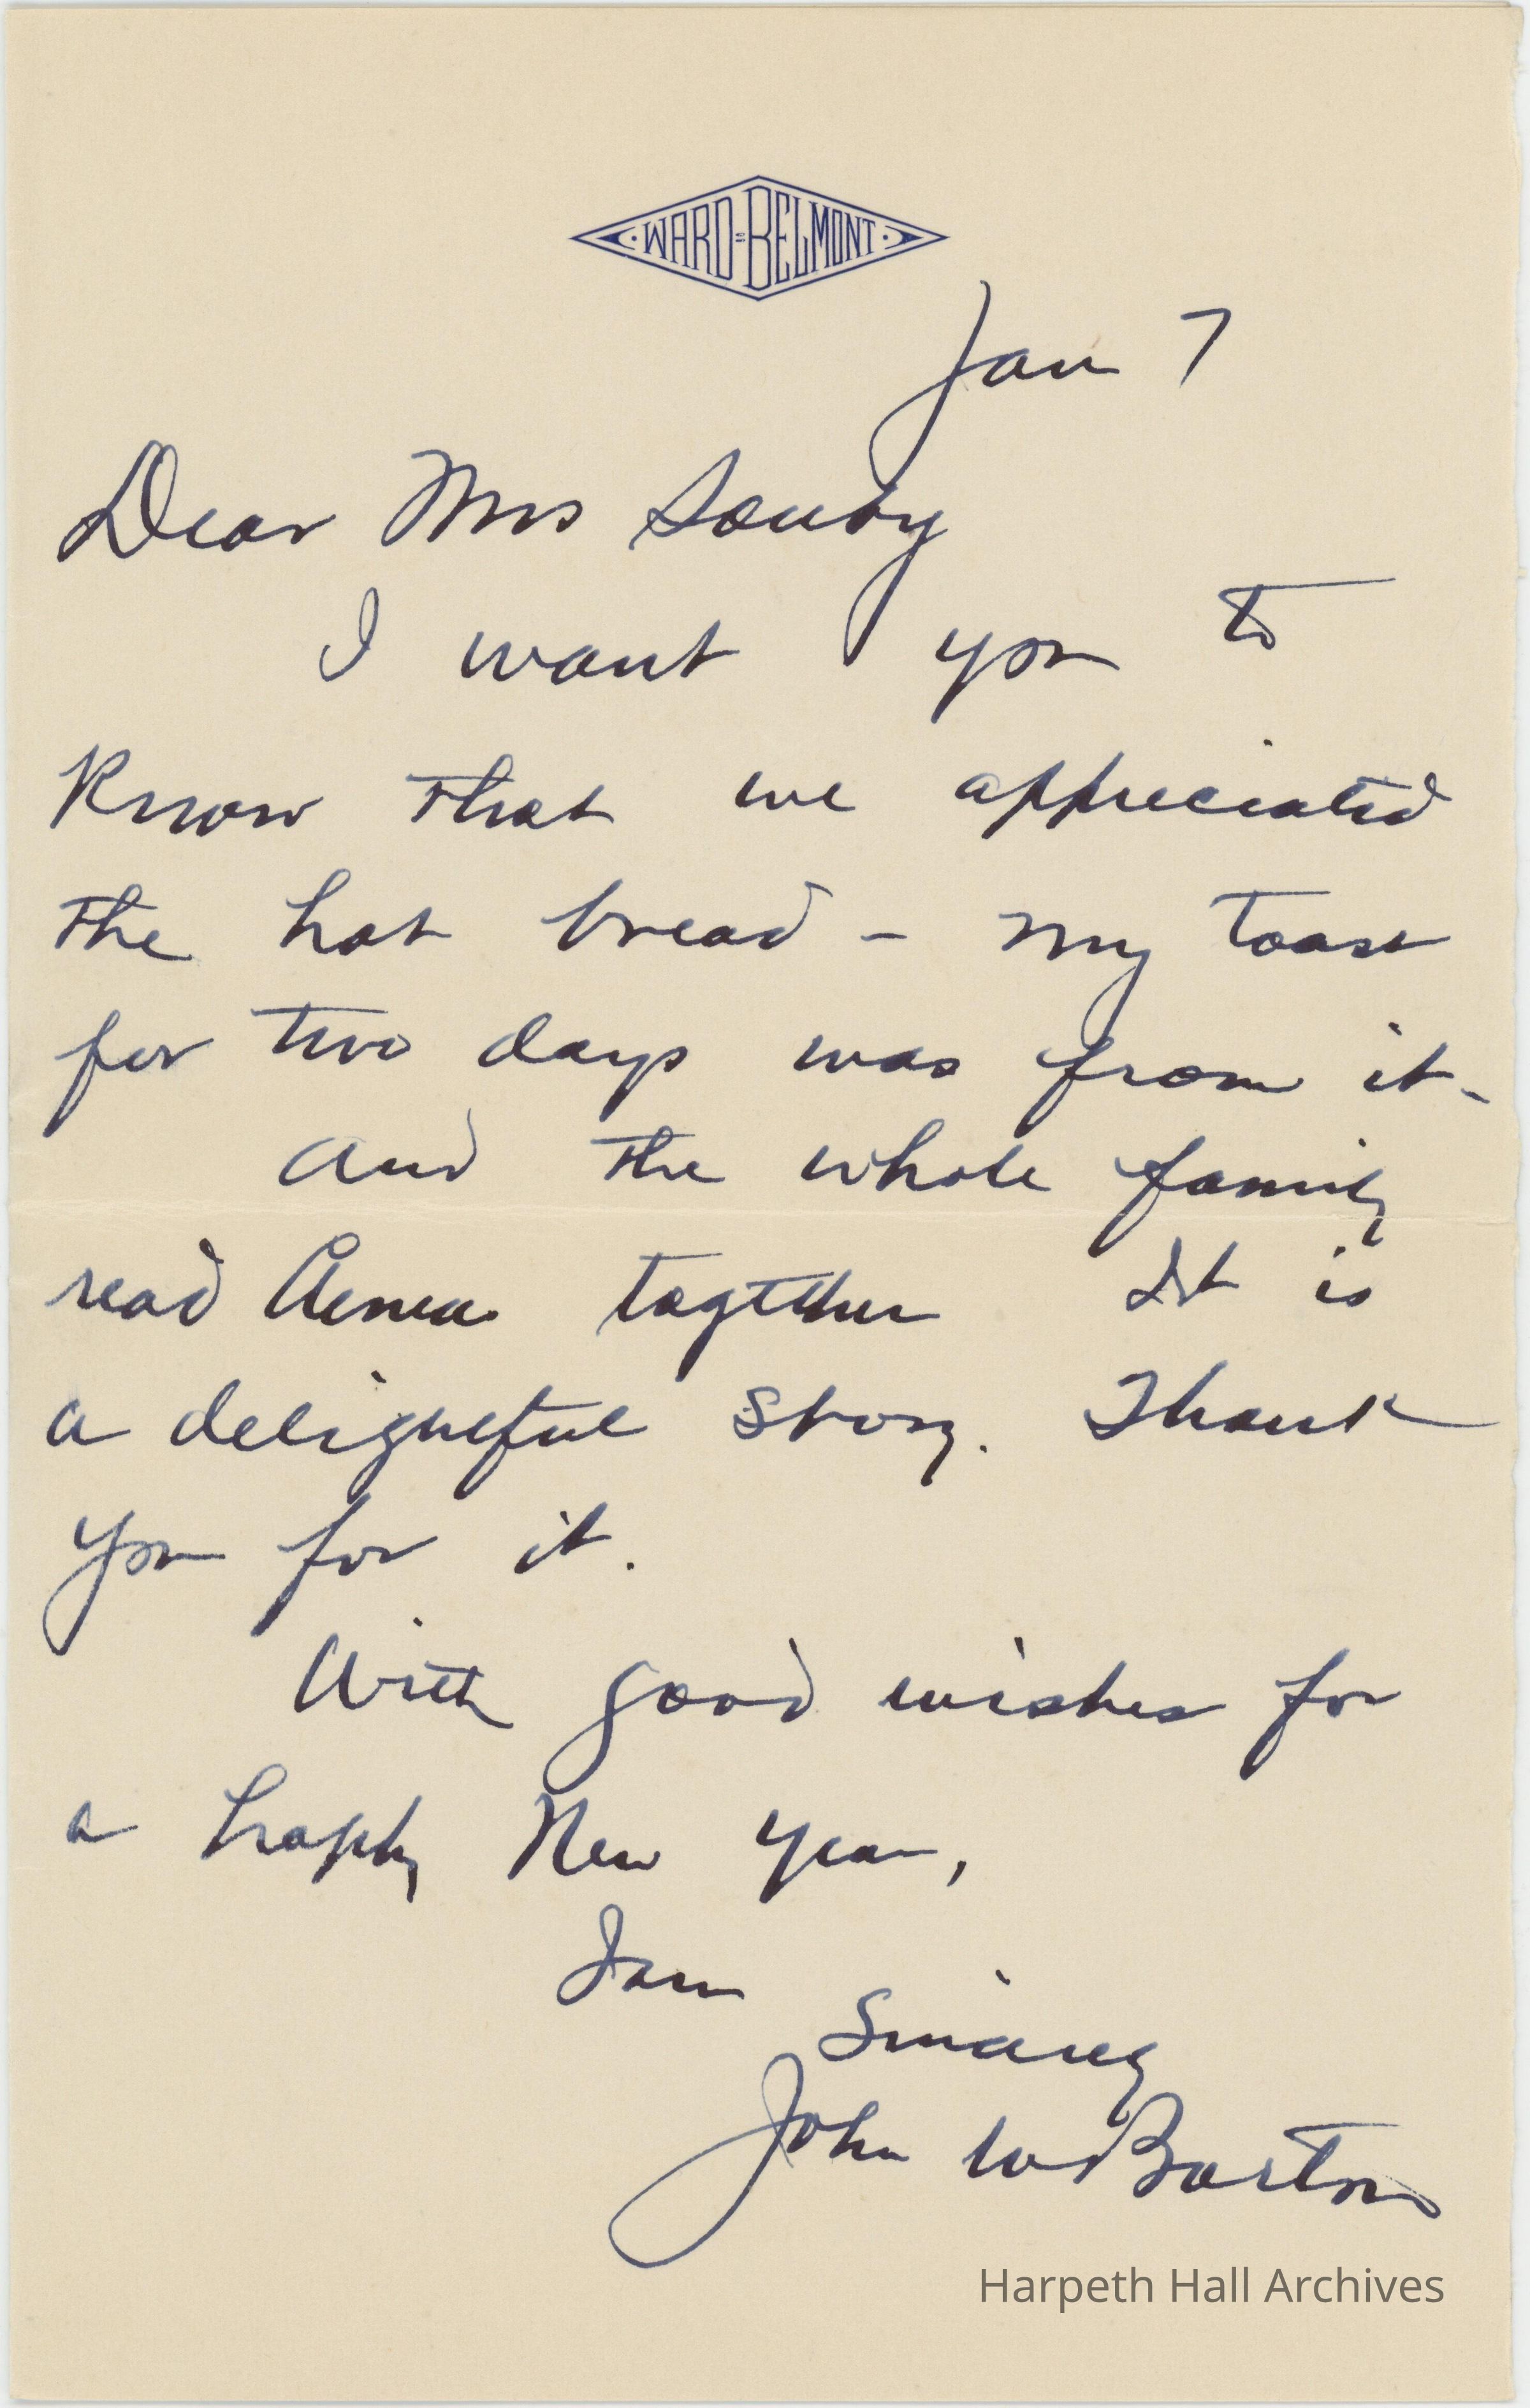 WARD-BELMONT
Jan 7
Dear Mrs Souby
I want you to
know that we appreciated
the hot bread - my toast
for two days was from it -
and the whole family
read together It is
a delightful story. Thank
you for it.
With good wishes for
a happy New Year,
I am
Sincerely
John W Barton
Harpeth Hall Archives